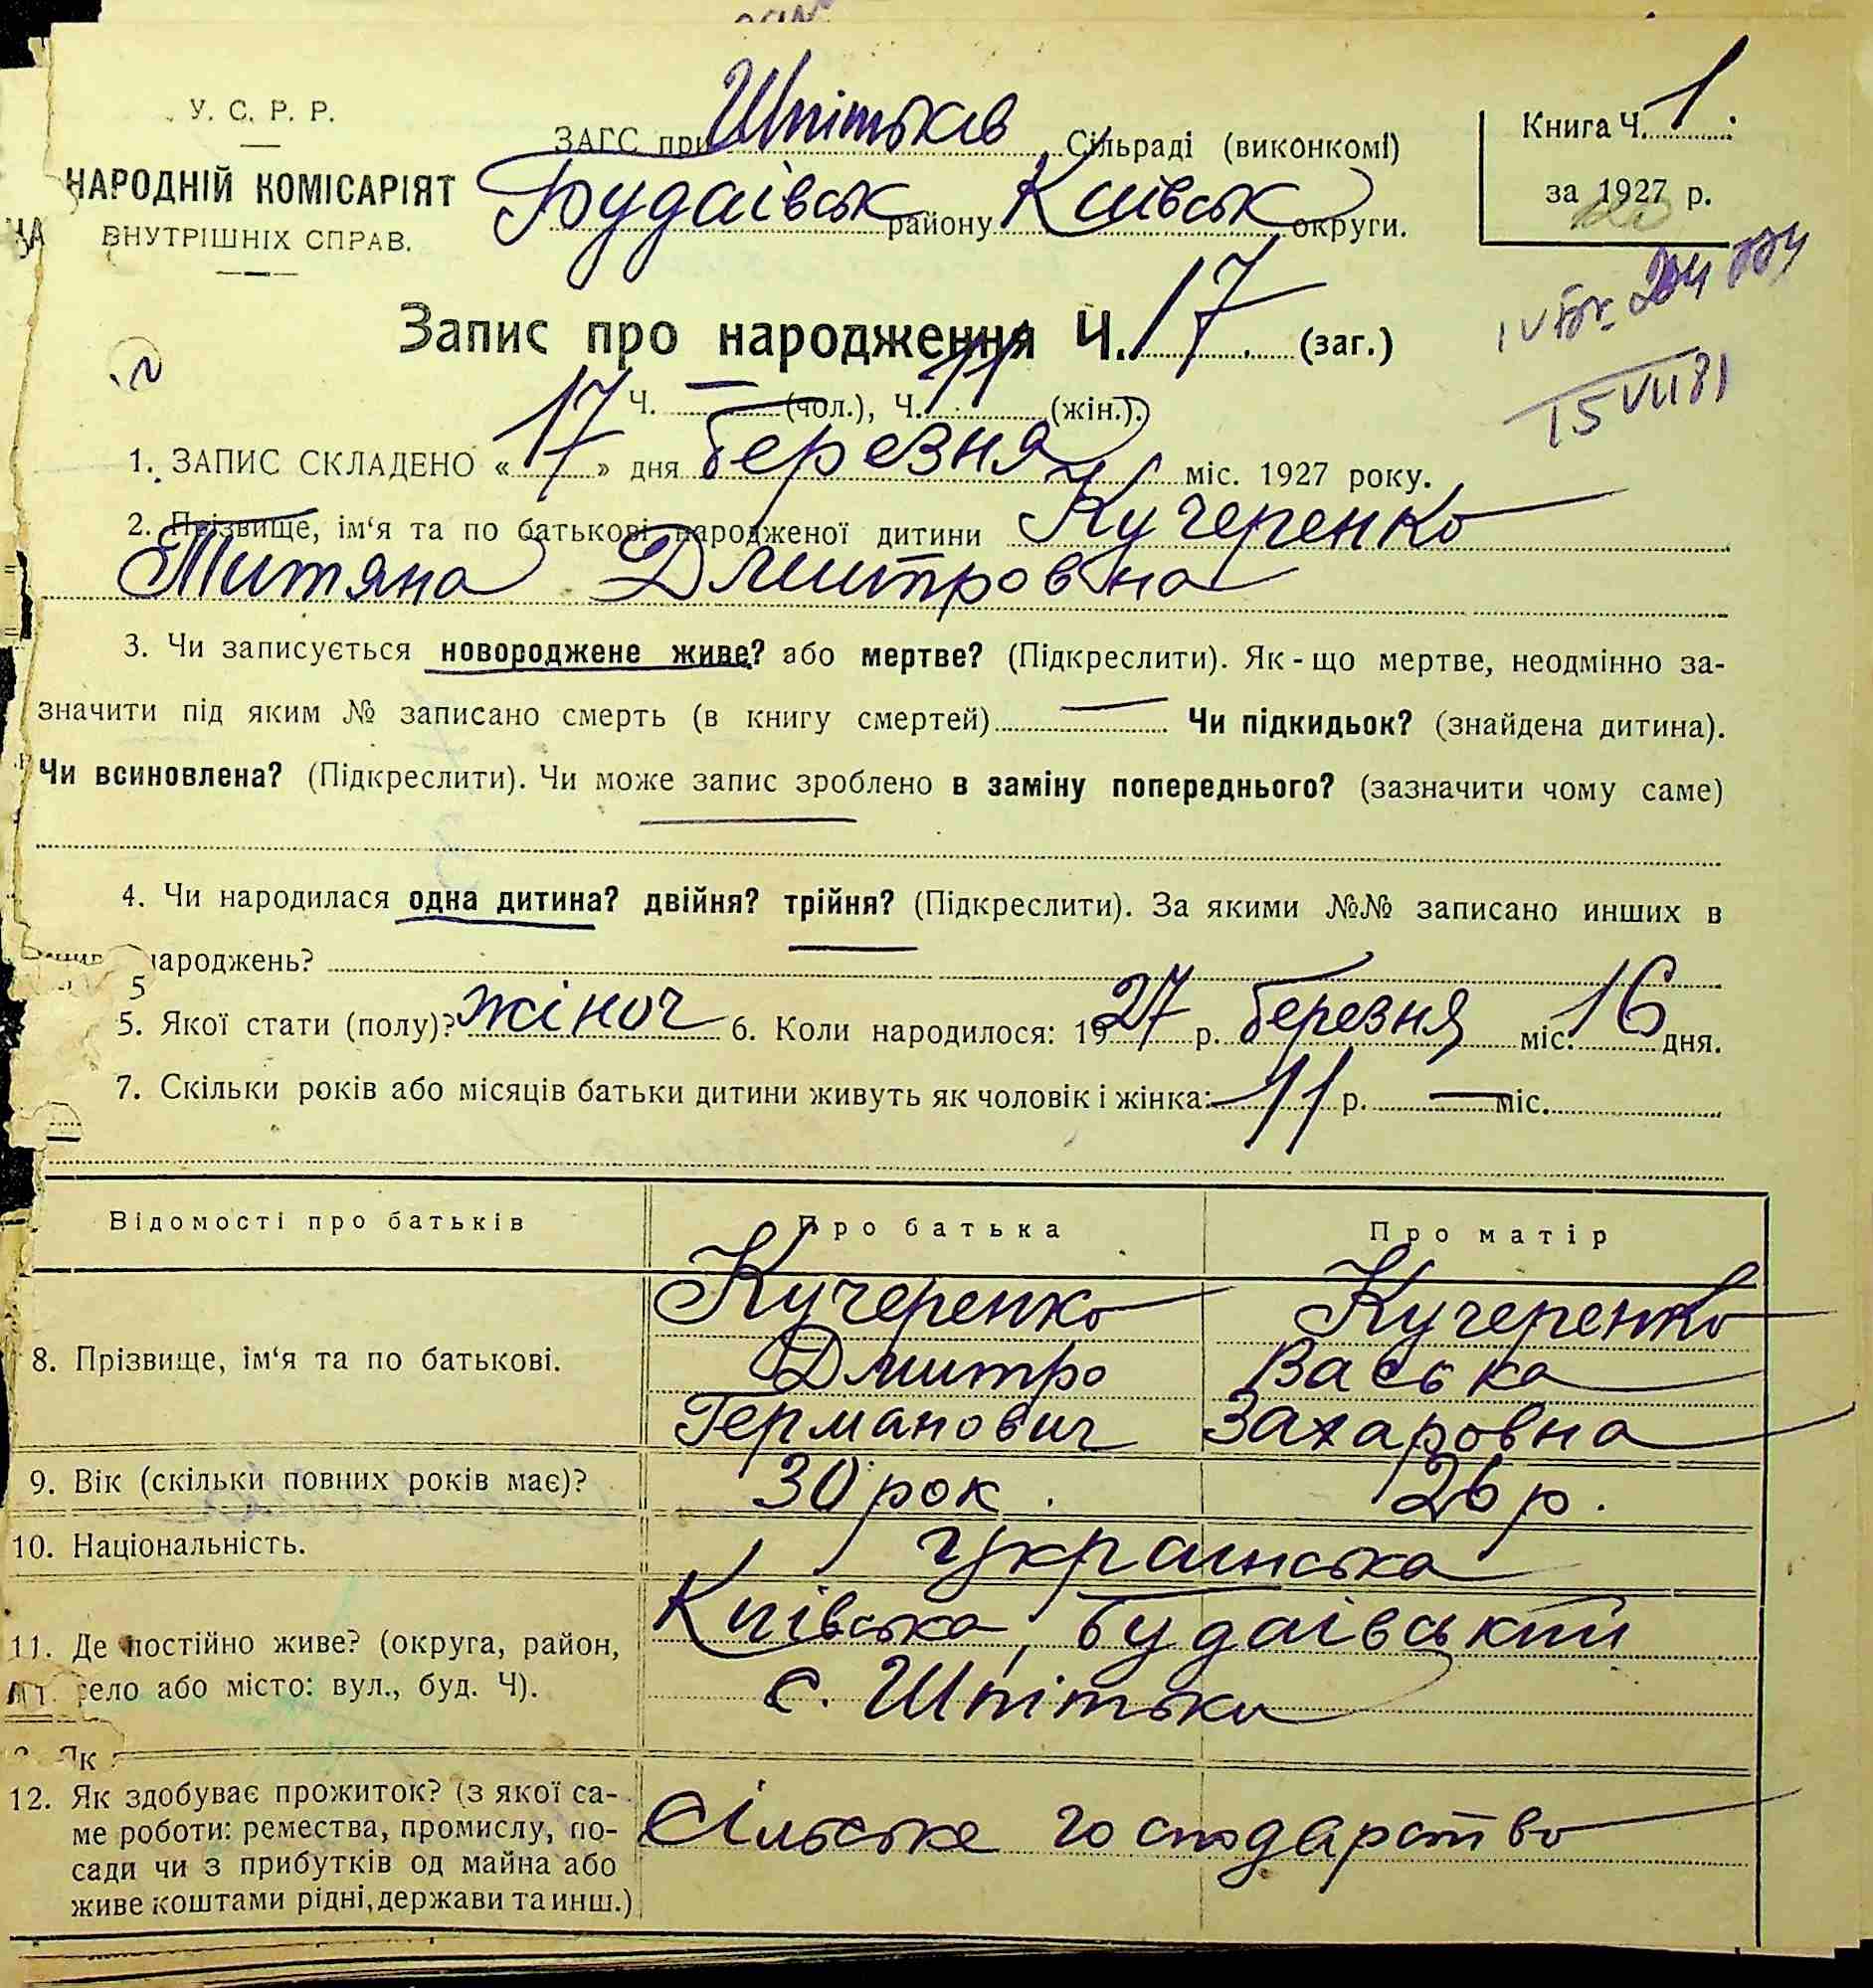 У. С. Р. Р.
НАРОДНІЙ КОМІСАРІЯТ
ВНУТРІШНІХ СПРАВ.
ЗАГС при Шпітьків Сільраді (виконкомі)
Будаївськ району Київськ округи.
Книга Ч. 1.
за 1927 р.
Запис про народження Ч. 17. (заг.)
Ч. — (чол.), Ч. 11 (жін.).
15 VII 81
1. ЗАПИС СКЛАДЕНО « 17 » дня березня міс. 1927 року.
2. Прізвище, ім‘я та по батькові народженої дитини Кучеренко
Титяна Дмитровна
3. Чи записується новороджене живе? або мертве? (Підкреслити). Як-що мертве, неодмінно за-
значити під яким № записано смерть (в книгу смертей) — Чи підкидьок? (знайдена дитина).
Чи всиновлена? (Підкреслити). Чи може запис зроблено в заміну попереднього? (зазначити чому саме)
4. Чи народилася одна дитина? двійня? трійня? (Підкреслити). За якими №№ записано инших в
народжень?
5. Якої стати (полу)? жіноч 6. Коли народилося: 1927 р. березня міс. 16 дня.
7. Скільки років або місяців батьки дитини живуть як чоловік і жінка: 11 р. — міс.
Відомості про батьків Про батька Про матір
8. Прізвище, ім‘я та по батькові.
Кучеренко Кучеренко
Дмитро Васька
Германович Захаровна
9. Вік (скільки повних років має)? 30 рок. 26 р.
10. Національність. Українська
11. Де постійно живе? (округа, район,
село або місто: вул., буд. Ч).
Київська, Будаівський
с. Шпітьки
12. Як здобуває прожиток? (з якої са-
ме роботи: ремества, промислу, по-
сади чи з прибутків од майна або
живе коштами рідні, держави та инш.)
Сільське господарство